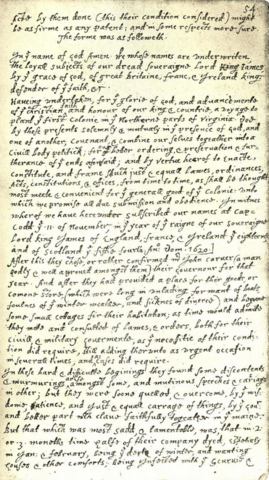 54
acte by them done (this their condition considered) might
be as firme as any patent; and in some respects more sure.
The forme was as followeth.
In y^e name of god Amen. We whose names are underwriten,
the loyall subjects of our dread soveraigne Lord King James
by y^e grace of god, of great Britaine, franc, & Ireland king,
defender of y^e faith, &c.
Haveing undertaken, for y^e glorie of god, and advancemente
of y^e christian faith and honour of our king & countrie, a voyage to
plant y^e first colonie in y^e Northerne parts of Virginia. Doe
by these presents solemnly & mutualy in y^e presence of god, and
one of another; covenant, & combine our selves togeather into a
civill body politick; for our better ordering, & preservation & fur-
therance of y^e ends aforesaid; and by vertue hearof to enacte,
constitute, and frame shuch just & equall Lawes, ordinances,
Acts, constitutions, & offices, from time to time, as shall be thought
most meete & convenient for y^e generall good of y^e Colonie: unto
which we promise all due submission and obedience. In witnes
wherof we have hereunder subscribed our names at Cap-
Codd y^e .11. of November, in y^e year of y^e raigne of our soveraigne
Lord king James of England, france, & Ireland y^e eighteenth
and of Scotland y^e fiftie fourth. An^o: Dom. 1620.
After this they chose, or rather confirmed m^r John Carver (a man
godly & well approved amongst them) their Governour for that
year. And after they had provided a place for their goods, or
comone store, (which were long in unlading for want of boats,
foulnes of y^e winter weather, and sicknes of diverce) and begune
some small cottages for their habitation; as time would admitte
they mette and consulted of lawes, & orders, both for their
civill, & military govermente, as y^e necessitie of their condi-
tion did require, still adding therunto as urgent occasion
in severall times, and cases did require.
In these hard & difficulte beginings they found some discontents
& murmurings arise amongst some, and mutinous speeches & cariags
in other; but they were soone quelled, & overcome, by y^e wis-
dome, patience, and just & equall carrage of things, by y^e Gov^r
and better part w^ch clave faithfully togeather in y^e maine.
But that which was most sadd, & lamentable, was, that in .2.
or .3. moneths time halfe of their company dyed, espetialy
in Jan: & february, being y^e depth of winter, and wanting
houses & other comforts; being infected with y^e scurvie &